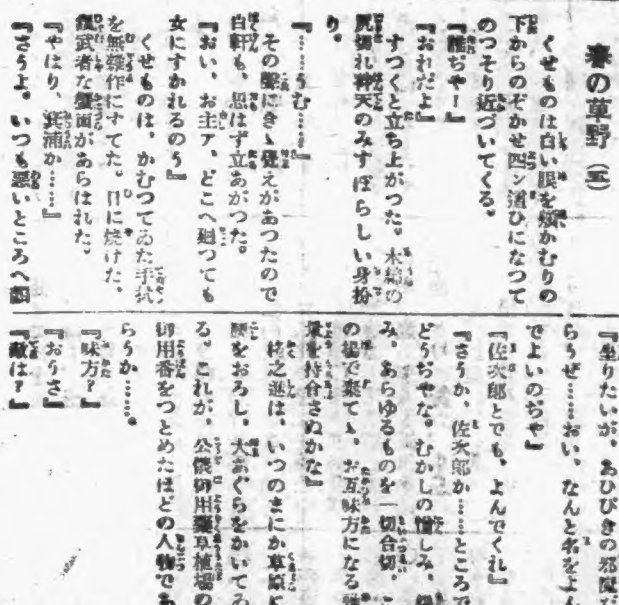 春の草野（五）
くせものは白い眼を頬かむりの
下からのぞかせ四ツ這ひになつて
のつそり近づいてくる。
『誰ぢや！』
『おれだよ』
すつくと立ち上がつた。木綿の
尻切れ袢天のみすぼらしい身扮
り。
『……うむ……』
その聲にきゝ覺えがあつたので
白軒も、思はず立あがつた。
『おい、お主ア、どこへ廻つても
女にすかれるのう』
くせものは、かむつてゐた手拭
を無雜作にすてた。日に焼けた、
武者な面があらはれた。
『やはり、箕浦か……』
『さうよ。いつも悪いところへ顔
『坐りたいが、あひびきの邪魔だ
らうぜ……おい、なんと名をよん
でよいのぢや』
『佐次郎とでも、よんでくれ』
『さうか、佐次郎か……ところで
どうぢやな。むかしの憎しみ、
み、あらゆるものを一切合切、こ
の場で棄てゝ、お互味方になる
を持合さぬかな』
之進は、いつのまにか草原に
腰をおろし、大あぐらをかいてゐ
る。これが、公儀御用藥草植場の
御用番をつとめたほどの人物であ
らうか……。
『味方？』
『おうさ』
『敵は？』